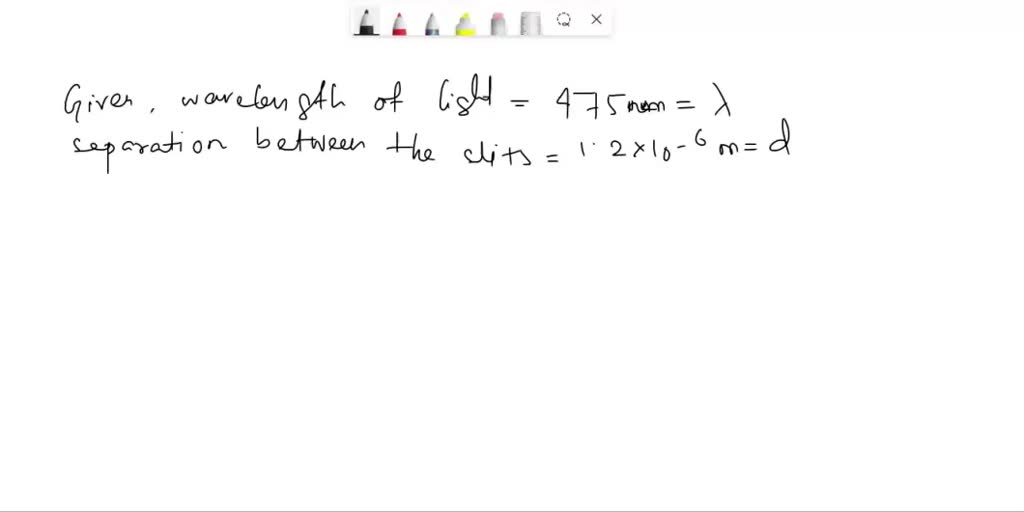 Given, wavelength of light = 475nm = λ
separation between the slits = 1.2×10-6 m = d